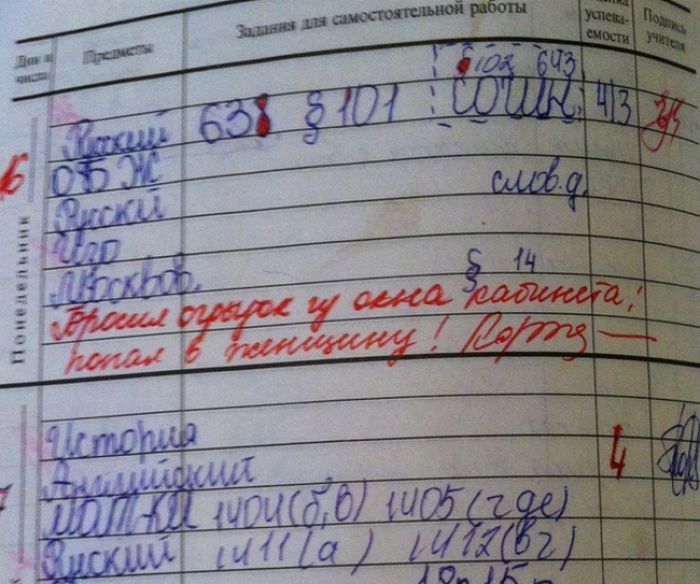 Дни и числа Предметы Задания для самостоятельной работы успева-емости Подпись учителя
§102 643
Русский 638 §101 сочин. 4/3
16 ОБЖ
Русский слов.д.
Изо
Москвов. § 14
Понедельник
Бросил огрызок из окна кабинета!
попал в женщину!
История
Английский 4
мат-ка 1404(б,в) 1405(где)
Русский 1411(а) 1412(вг)